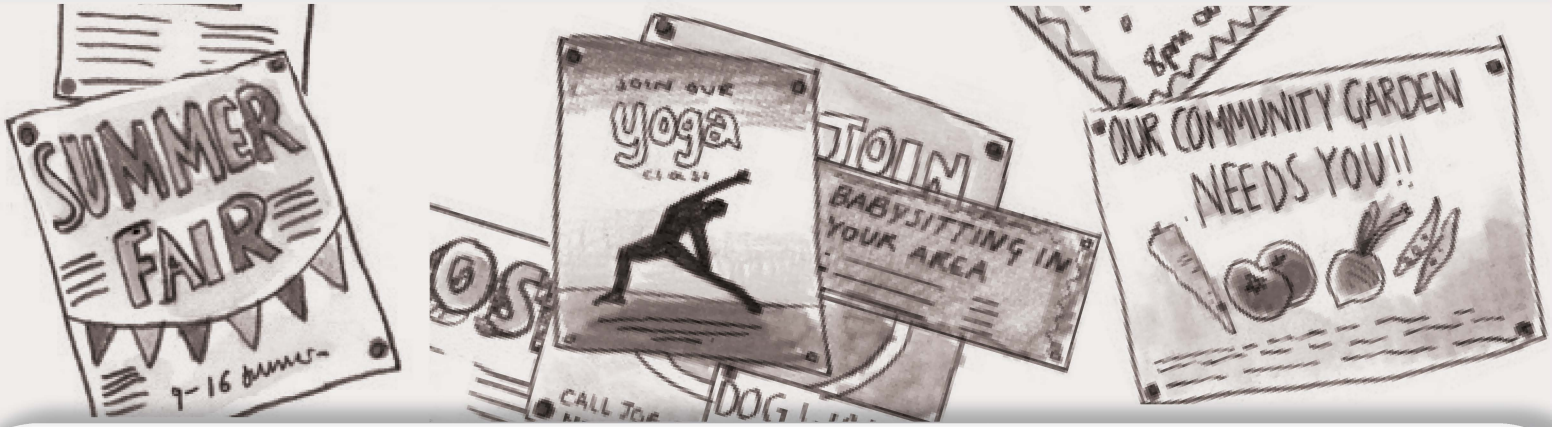 SUMMER
FAIR
9-16
OS
JOIN OUR
yoga
class
JOIN
BABYSITTING IN
YOUR AREA
CALL JOE
DOG
8pm
OUR COMMUNITY GARDEN
NEEDS YOU!!